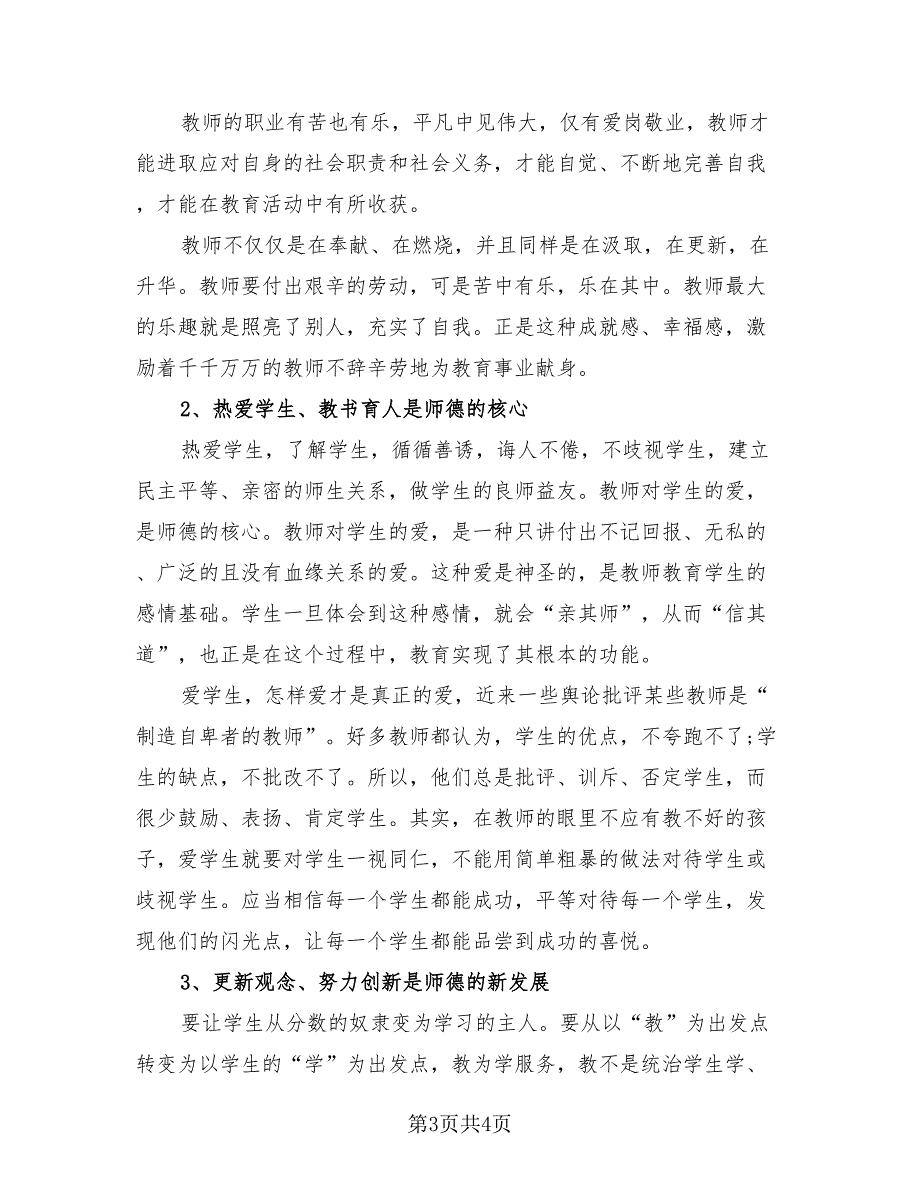 教师的职业有苦也有乐，平凡中见伟大，仅有爱岗敬业，教师才
能进取应对自身的社会职责和社会义务，才能自觉、不断地完善自我
，才能在教育活动中有所收获。
教师不仅仅是在奉献、在燃烧，并且同样是在汲取，在更新，在
升华。教师要付出艰辛的劳动，可是苦中有乐，乐在其中。教师最大
的乐趣就是照亮了别人，充实了自我。正是这种成就感、幸福感，激
励着千千万万的教师不辞辛劳地为教育事业献身。
2、热爱学生、教书育人是师德的核心
热爱学生，了解学生，循循善诱，诲人不倦，不歧视学生，建立
民主平等、亲密的师生关系，做学生的良师益友。教师对学生的爱，
是师德的核心。教师对学生的爱，是一种只讲付出不记回报、无私的
、广泛的且没有血缘关系的爱。这种爱是神圣的，是教师教育学生的
感情基础。学生一旦体会到这种感情，就会“亲其师”，从而“信其
道”，也正是在这个过程中，教育实现了其根本的功能。
爱学生，怎样爱才是真正的爱，近来一些舆论批评某些教师是“
制造自卑者的教师”。好多教师都认为，学生的优点，不夸跑不了;学
生的缺点，不批改不了。所以，他们总是批评、训斥、否定学生，而
很少鼓励、表扬、肯定学生。其实，在教师的眼里不应有教不好的孩
子，爱学生就要对学生一视同仁，不能用简单粗暴的做法对待学生或
歧视学生。应当相信每一个学生都能成功，平等对待每一个学生，发
现他们的闪光点，让每一个学生都能品尝到成功的喜悦。
3、更新观念、努力创新是师德的新发展
要让学生从分数的奴隶变为学习的主人。要从以“教”为出发点
转变为以学生的“学”为出发点，教为学服务，教不是统治学生学、
第3页共4页